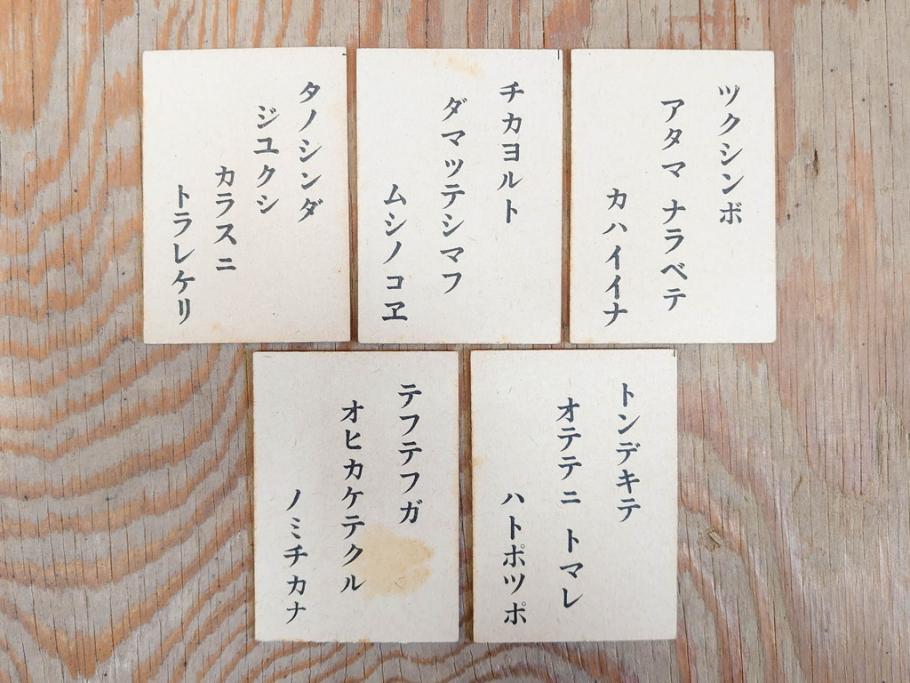 ツクシンボ
アタマ ナラベテ
カハイイナ
チカヨルト
ダマツテシマフ
ムシノコヱ
タノシンダ
ジユクシ
カラスニ
トラレケリ
トンデキテ
オテテニ トマレ
ハトポツポ
テフテフガ
オヒカケテクル
ノミチカナ